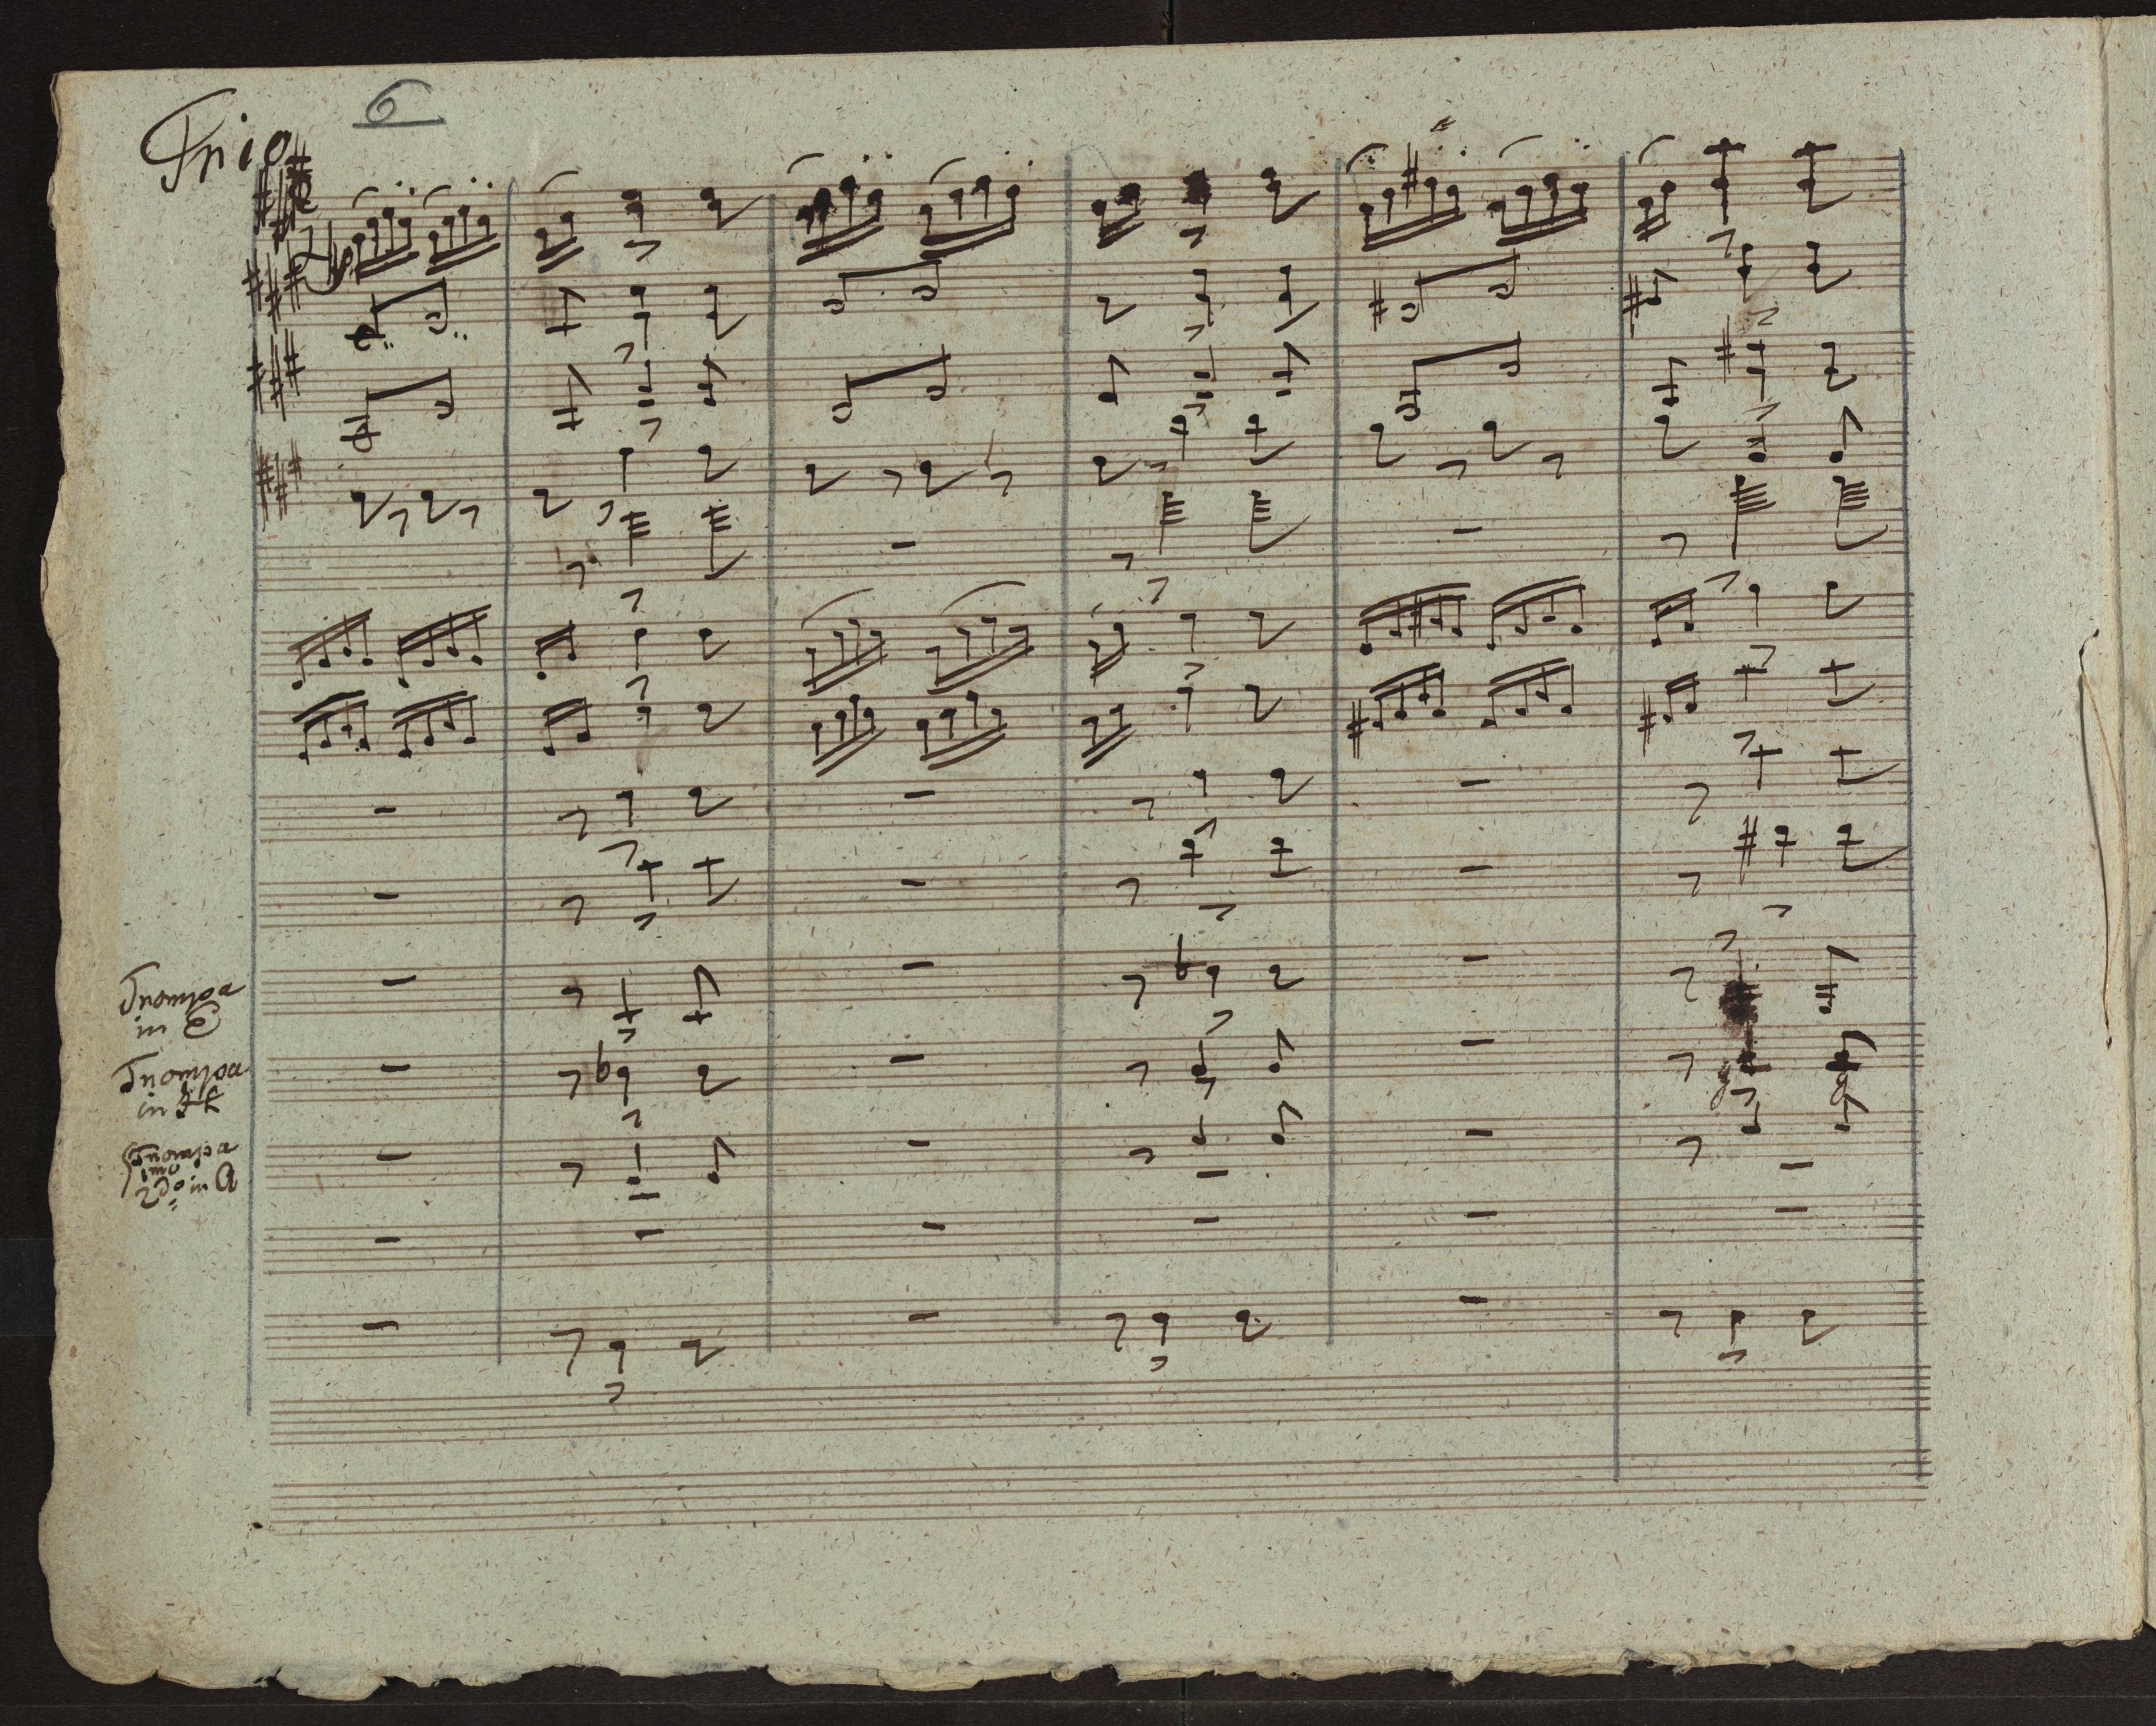 Trio
6
Trompa
in E
Trompa
in
Trompa
1mo
2do in A